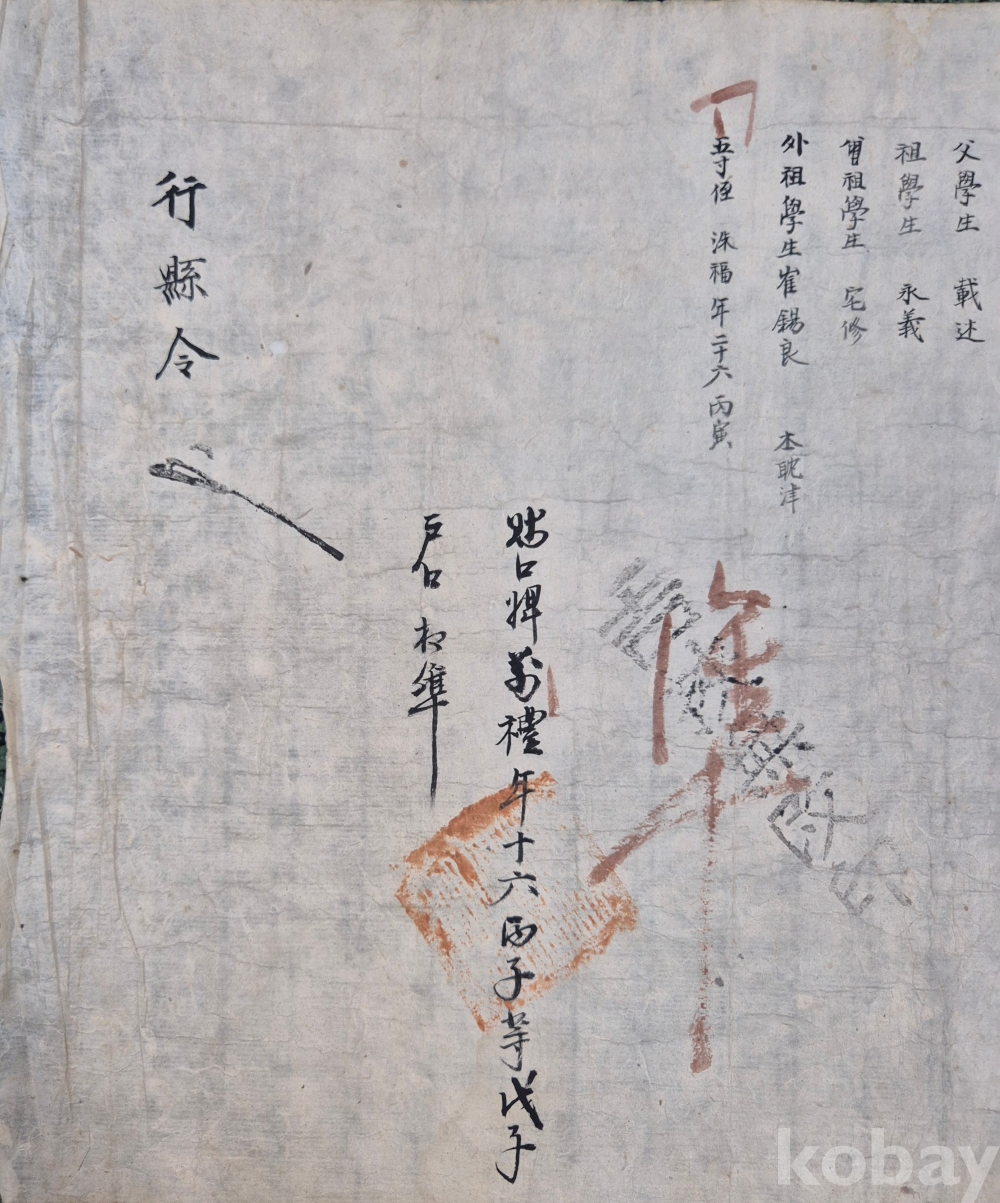 父學生 載述
祖學生 永義
曾祖學生 宅修
外祖學生崔錫良 本耽津
五寸侄 洙福 年二十六丙寅
賤口婢萬禮年十六丙子等戊子
戶口相準
行縣令
準
kobay